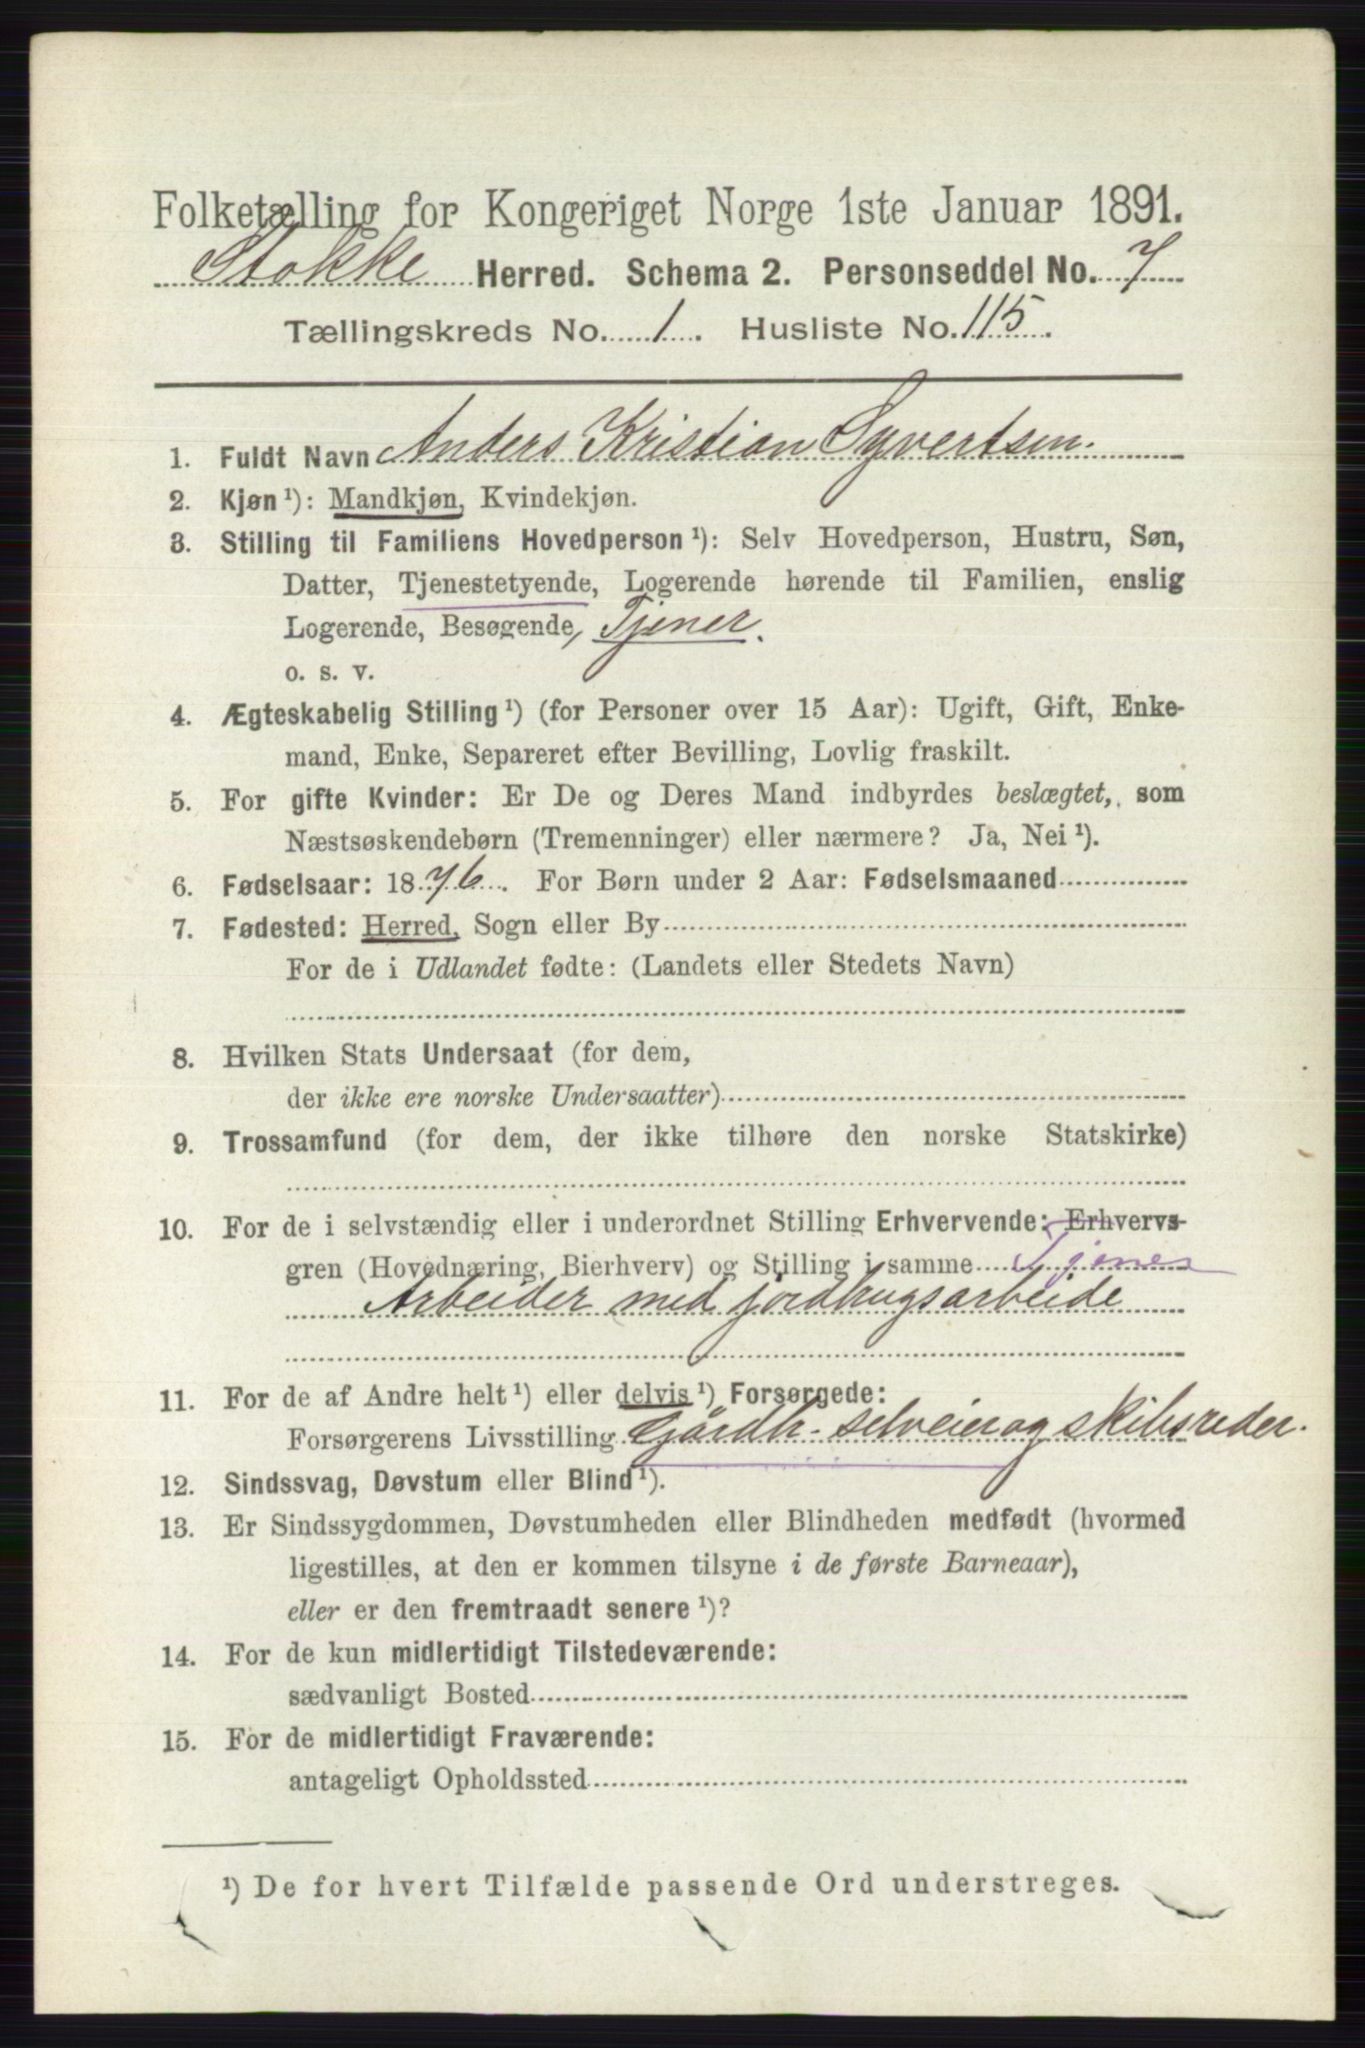 Folketælling for Kongeriget Norge 1ste Januar 1891.
Stokke Herred. Schema 2. Personseddel No. 7
Tællingskreds No. 1. Husliste No. 115.
1. Fuldt Navn Anders Kristian Syvertsen.
2. Kjøn ¹): Mandkjøn, Kvindekjøn.
3. Stilling til Familiens Hovedperson ¹): Selv Hovedperson, Hustru, Søn,
Datter, Tjenestetyende, Logerende hørende til Familien, enslig
Logerende, Besøgende, Tjener.
o. s. v.
4. Ægteskabelig Stilling ¹) (for Personer over 15 Aar): Ugift, Gift, Enke-
mand, Enke, Separeret efter Bevilling, Lovlig fraskilt.
5. For gifte Kvinder: Er De og Deres Mand indbyrdes beslægtet, som
Næstsøskendebørn (Tremenninger) eller nærmere? Ja, Nei ¹).
6. Fødselsaar: 1876. For Børn under 2 Aar: Fødselsmaaned
7. Fødested: Herred, Sogn eller By
For de i Udlandet fødte: (Landets eller Stedets Navn)
8. Hvilken Stats Undersaat (for dem,
der ikke ere norske Undersaatter)
9. Trossamfund (for dem, der ikke tilhøre den norske Statskirke)
10. For de i selvstændig eller i underordnet Stilling Erhvervende: Erhvervs-
gren (Hovednæring, Bierhverv) og Stilling i samme Tjener
Arbeider med jordbrugsarbeide
11. For de af Andre helt ¹) eller delvis ¹) Forsørgede:
Forsørgerens Livsstilling Gårdbr. selveier og skibsreder.
12. Sindssvag, Døvstum eller Blind ¹).
13. Er Sindssygdommen, Døvstumheden eller Blindheden medfødt (hvormed
ligestilles, at den er kommen tilsyne i de første Barneaar),
eller er den fremtraadt senere ¹)?
14. For de kun midlertidigt Tilstedeværende:
sædvanligt Bosted
15. For de midlertidigt Fraværende:
antageligt Opholdssted
¹) De for hvert Tilfælde passende Ord understreges.